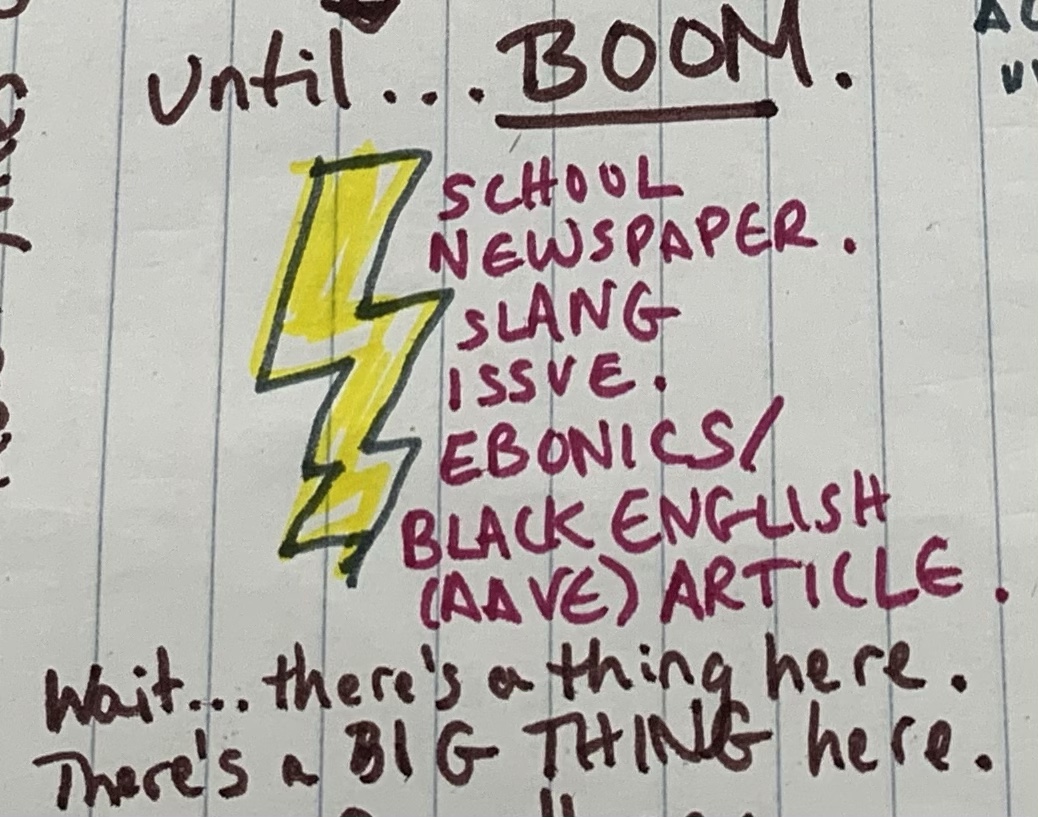 until... BOOM.
SCHOOL
NEWSPAPER.
SLANG
ISSUE.
EBONICS/
BLACK ENGLISH
(AAVE) ARTICLE.
Wait... there's a thing here.
There's a BIG THING here.